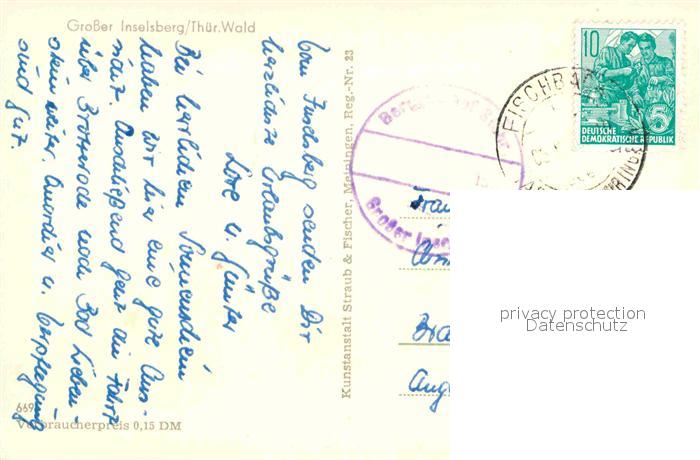 Großer Inselsberg/Thür. Wald
Vom Inselsberg senden Dir
herzlichste Urlaubsgrüße
Lore u. Günter
Bei herrlichem Sonnenschein
haben wir hier eine gute Aus-
sicht. Anschließend geht die Fahrt
über Brotterode nach Bad Lieben-
stein weiter. Quartier u. Verpflegung
sind gut.
669
Verbraucherpreis 0,15 DM
Kunstanstalt Straub & Fischer, Meiningen, Reg.-Nr. 23
Großer Insel
FISCHBA
10
DEUTSCHE
DEMOKRATISCHE REPUBLIK
Frau
Bra
Ang
privacy protection
Datenschutz